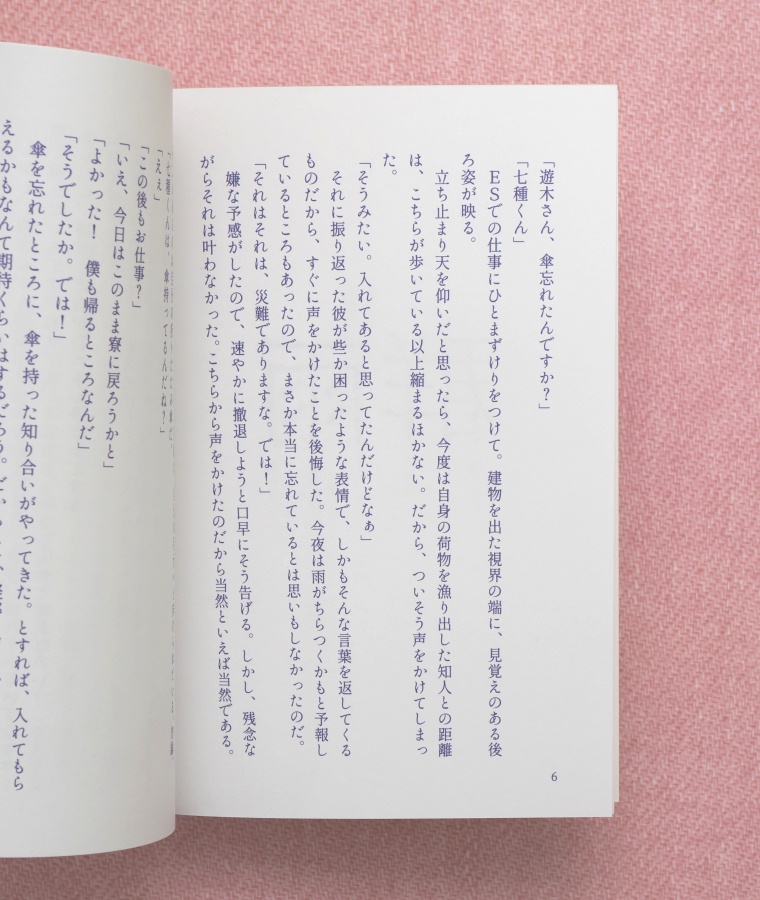 「遊木さん、傘忘れたんですか？」
「七種くん」
ＥＳでの仕事にひとまずけりをつけて。建物を出た視界の端に、見覚えのある後
ろ姿が映る。
立ち止まり天を仰いだと思ったら、今度は自身の荷物を漁り出した知人との距離
は、こちらが歩いている以上縮まるほかない。だから、ついそう声をかけてしまっ
た。
「そうみたい。入れてあると思ってたんだけどなぁ」
それに振り返った彼が些か困ったような表情で、しかもそんな言葉を返してくる
ものだから、すぐに声をかけたことを後悔した。今夜は雨がちらつくかもと予報し
ているところもあったので、まさか本当に忘れているとは思いもしなかったのだ。
「それはそれは、災難でありますな。では！」
嫌な予感がしたので、速やかに撤退しようと口早にそう告げる。しかし、残念な
がらそれは叶わなかった。こちらから声をかけたのだから当然といえば当然である。
6
「七種くんは、傘持ってるんだね？」
「ええ」
「この後もお仕事？」
「いえ、今日はこのまま寮に戻ろうかと」
「よかった！　僕も帰るところなんだ」
「そうでしたか。では！」
傘を忘れたところに、傘を持った知り合いがやってきた。とすれば、入れてもら
えるかもなんて期待くらいはするだろう。